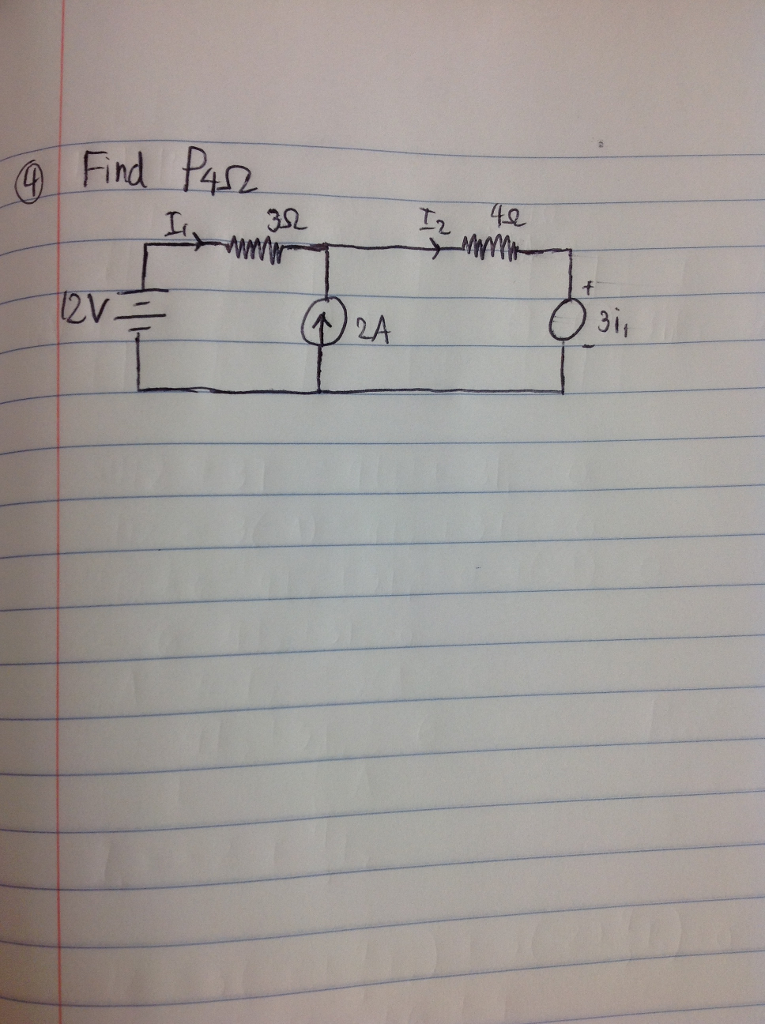 ④ Find P4Ω
I₁ 3Ω I₂ 4Ω
12V 2A + 3i₁ -